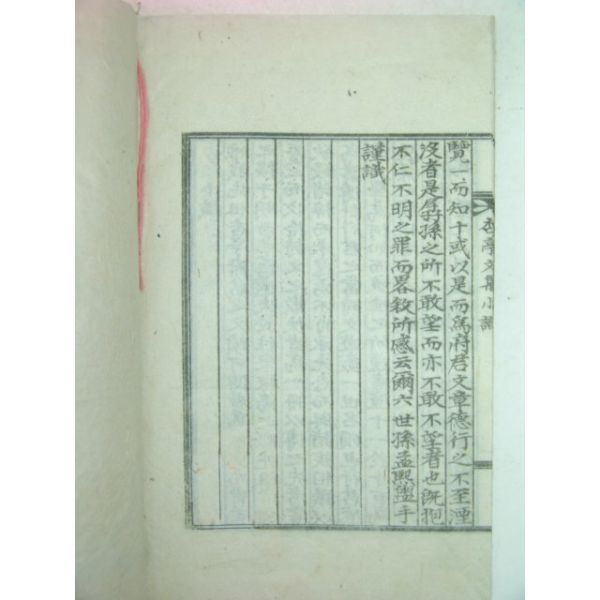 覽一而知十或以是而爲府君文章德行之不至湮
沒者是孱孫之所不敢望而亦不敢不望者也旣抱
不仁不明之罪而畧敘所感云爾六世孫孟熙盥手
謹識
文集小識